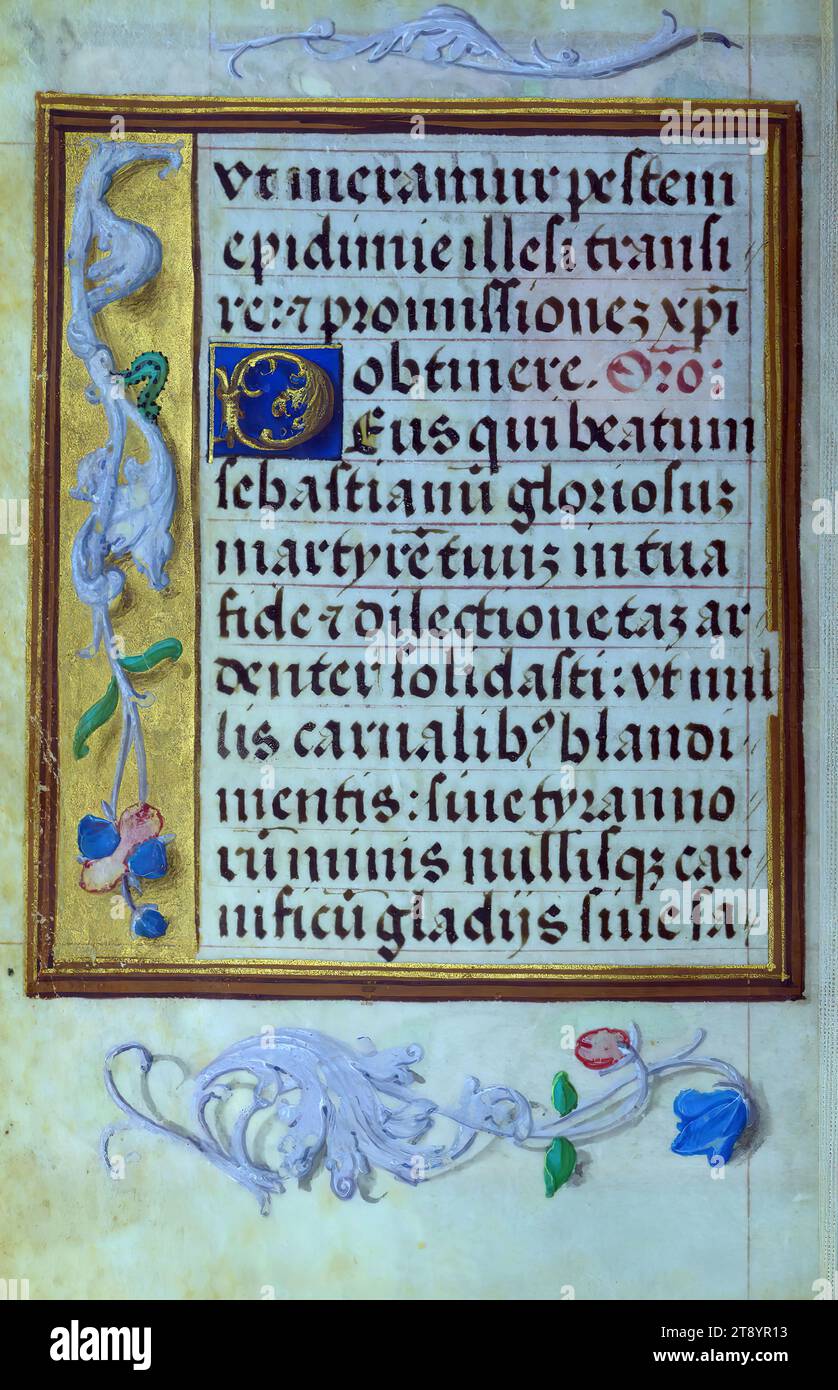 vt mereamur pestem
epidimie illesi transi
re: ⁊ promissionez xp̄i
obtinere. Or̄o:
Deus qui beatum
sebastianū gloriosuz
martyrē tuuz in tua
fide ⁊ dilectione taz ar
denter solidasti: vt nul
lis carnalibꝰ blandi-
mentis: siue tyranno
rū minis nullisqz car
nificū gladijs siue sa-
alamy
Image ID: 2T8YR13
www.alamy.com